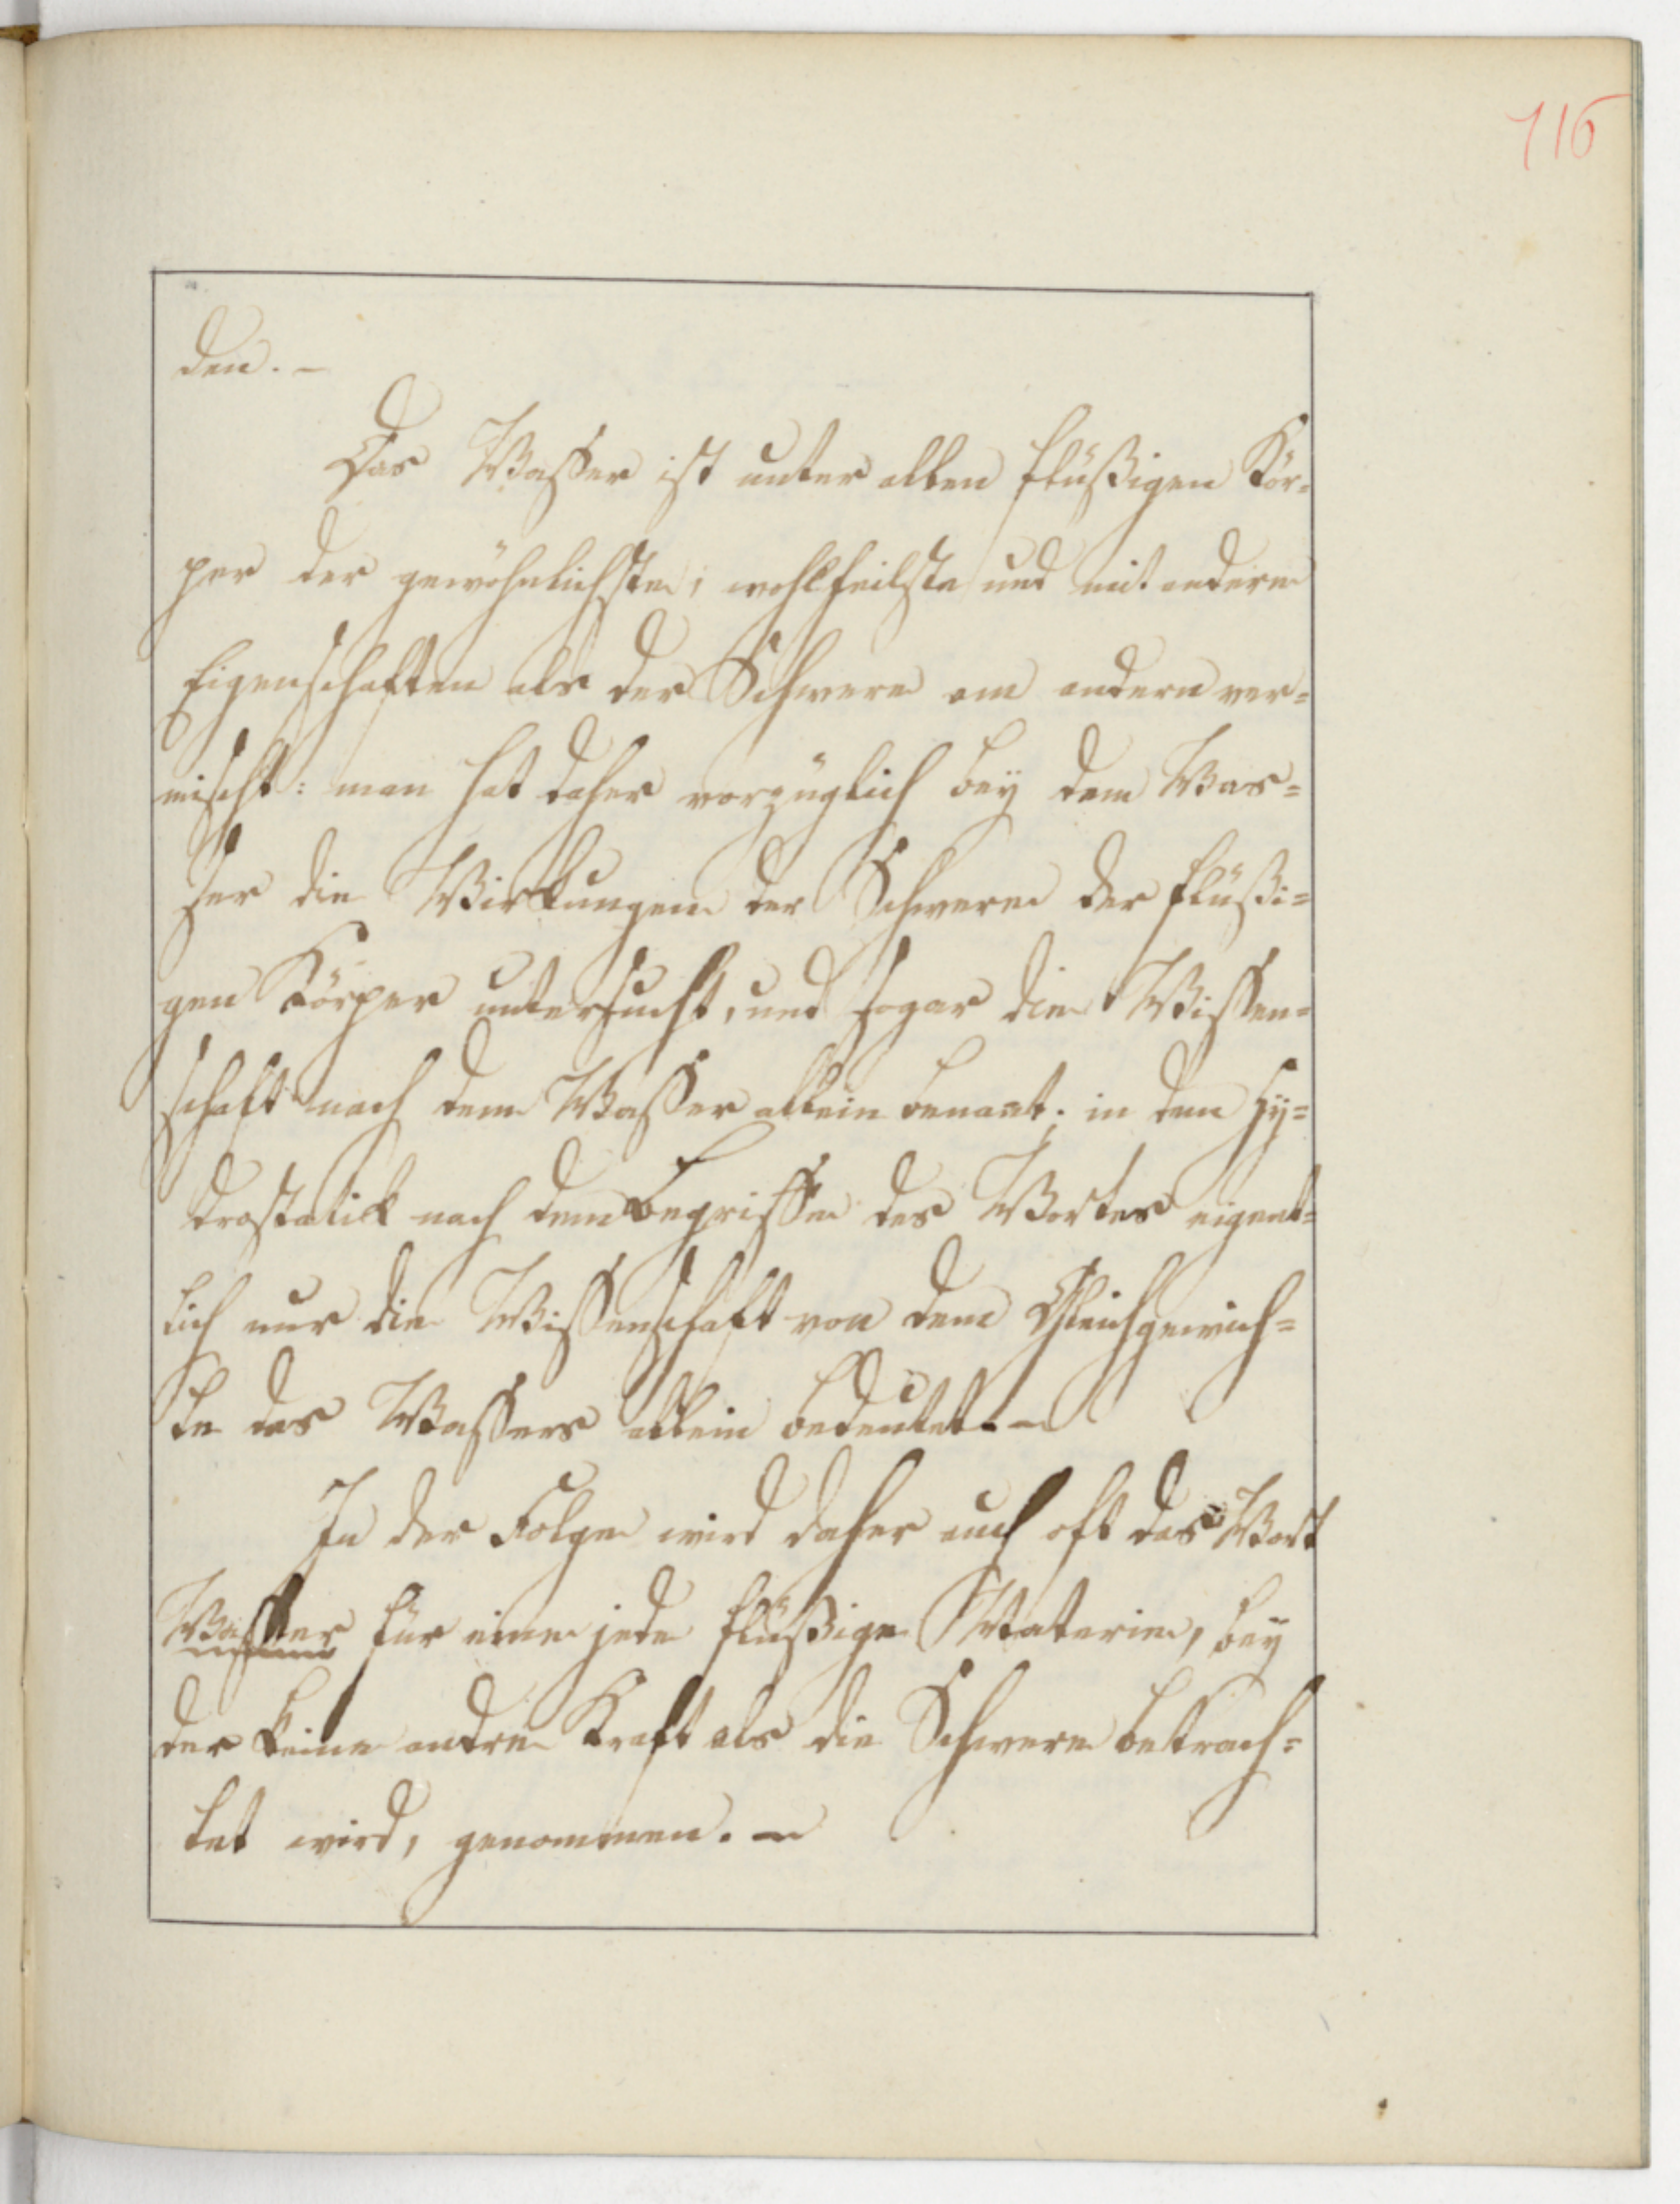 116
den. –
Das Waßer ist unter allen flüßigen Kör-
per der gewöhnlichste, wohlfeilste und mit andern
Eigenschaften als der Schwere am andern ver=
mischt: man hat daher vorzüglich bey dem Was=
ser die Wirkungen der Schwere der flüßi=
gen Körper untersucht, und sogar die Wißen=
schaft nach dem Waßer allein benant; in dem Hy=
drostatik nach dem Begriffe des Wortes eigent=
lich nur die Wißenschaft von dem Gleichgewich=
te des Waßers allein bedeutet. –
In der Folge wird daher auch oft das Wort
Waßer für eine jede flüßige Materie, bey
der keine andre Kraft als die Schwere betrach=
tet wird, genommen. –